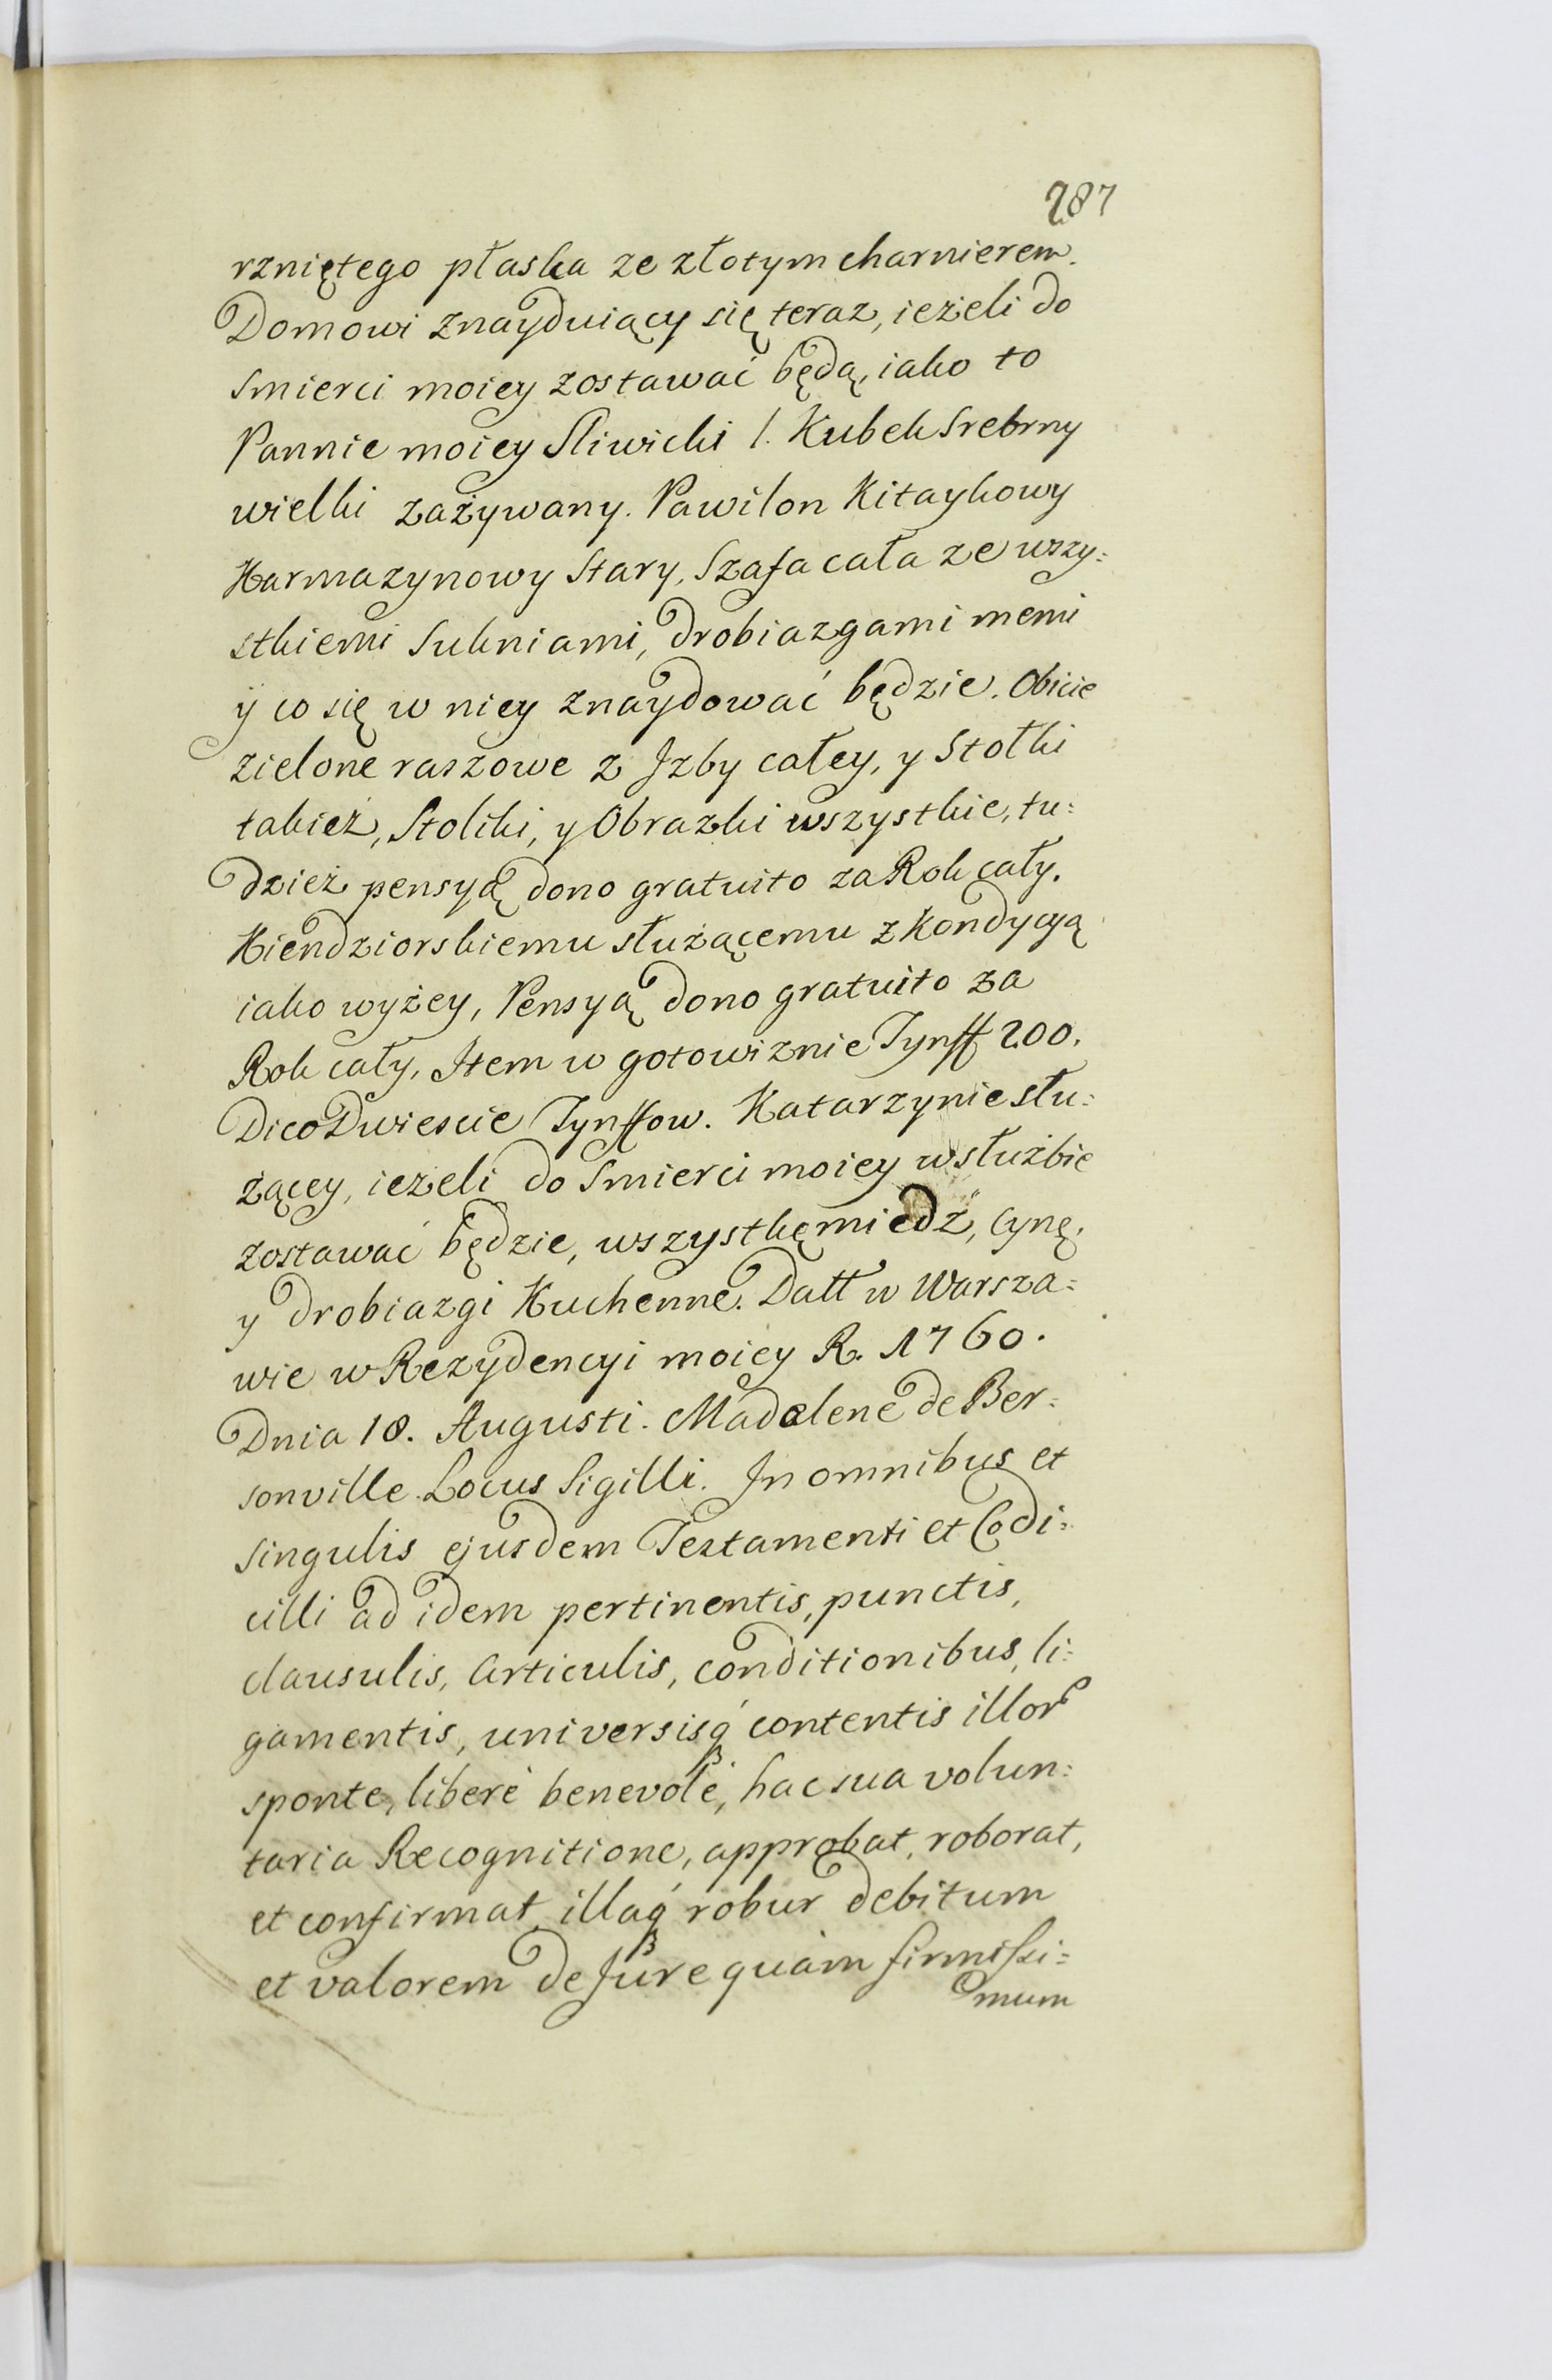 287
rzniętego płaska ze złotym charnierem.
Domowi znayduiący się teraz, ieżeli do
smierci moiey zostawać będą, iako to
Pannie moiey Sliwicki 1. Kubek Srebrny
wielki zażywany. Pawilon Kitaykowy
Karmazynowy Stary, Szafa cała ze wszy=
stkiemi Sukniami, drobiazgami memi
ÿ co się w niey znaydować będzie. Obicie
zielone raszowe z Jzby całey, y Stołki
takież, Stoliki, y Obrazki wszystkie, tu=
dzież pensyą dono gratuito za Rok cały.
Kiendziorskiemu służącemu z Kondycyą
iako wyżey, Pensyą dono gratuito za
Rok cały, Jtem w gotowiznie Tynff 200.
Dico Dwiescie Tynffow. Katarzynie słu=
żącey, ieżeli do smierci moiey w służbie
zostawać będzie, wszystkę miedź, Cynę,
y drobiazgi Kuchenne. Datt w Warsza=
wie w Rezydencyi moiey R. 1760.
Dnia 18. Augusti. Madelene de Ber=
sonville. Locus Sigilli. Jn omnibus et
singulis ejusdem Testamenti et Codi=
cilli ad idem pertinentis, punctis,
clausulis, Articulis, conditionibus, li=
gamentis, universisq́ contentis illor
sponte, liberè benevolè, hac sua volun=
taria Recognitione, approbat, roborat,
et confirmat, illaq́ robur debitum
et valorem de Jure quàm firmissi=
mum